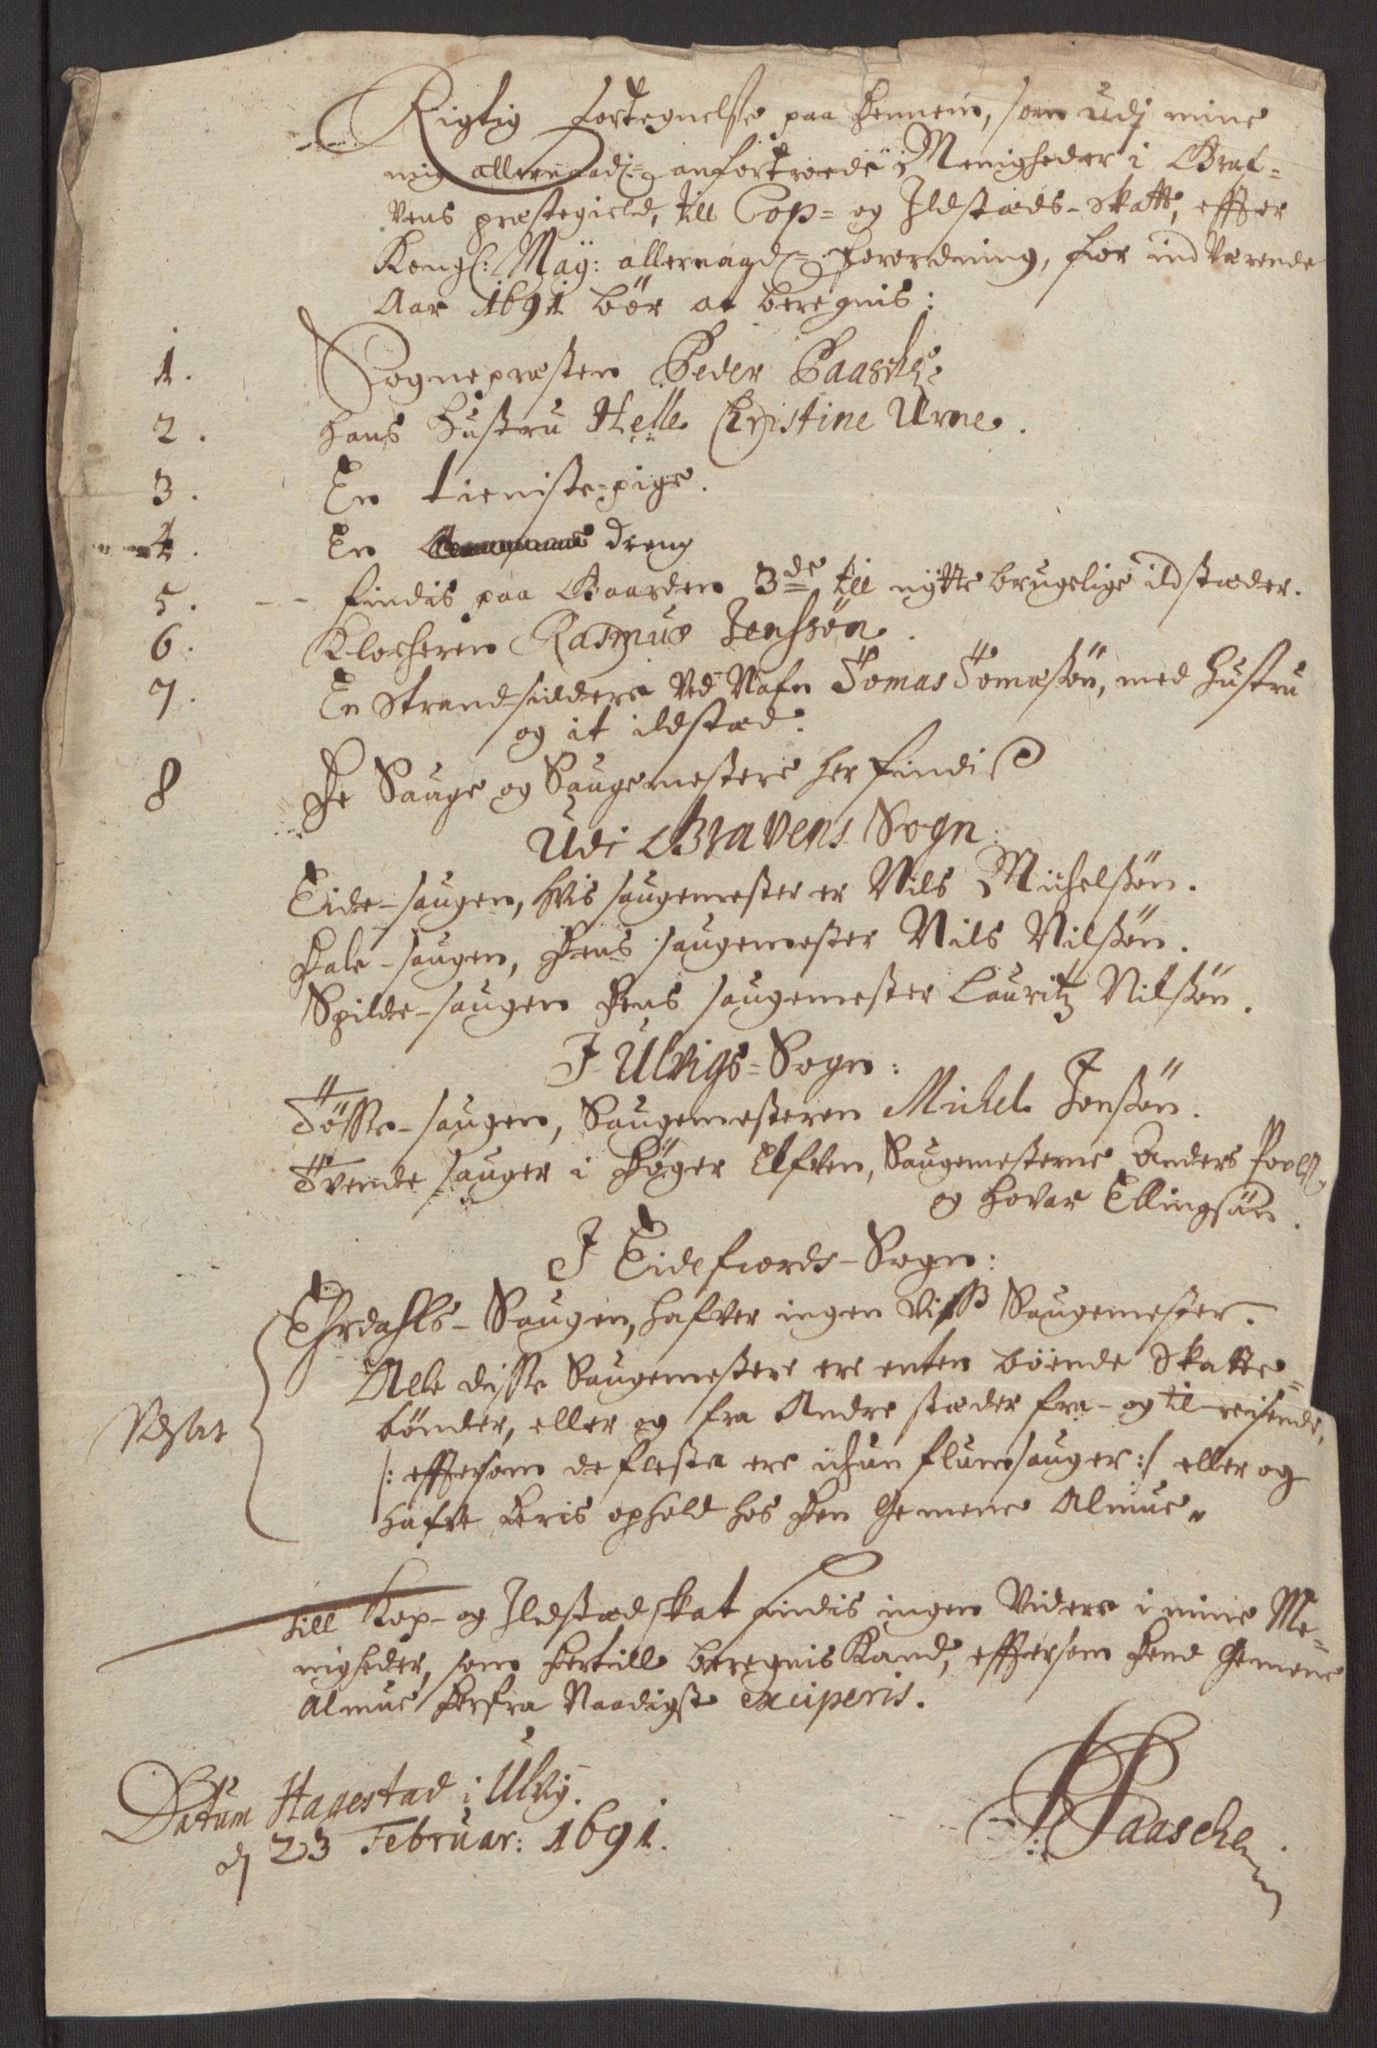 Rigtig fortegnelse paa Dennem, som udj mine
mig allernaad: anfortroede Menigheder i Gra-
vens præstegield, till Cop= og Ildstæds-skatt, effter
Kongl: May: allernagd= forordning, for ind værende
Aar 1691 bör at beregnis:
1. Sognepræsten Peder Paasche
2. hans hustru Helle Christine Urne.
3. En tieniste-pige.
4. En dreng
5. findis paa Gaarden 3de till nytte brugelige ildstæder.
6. Klocheren Rasmus Jenssön.
7. En Strandsidder ved Nafn Tomas Tomæssön, med hustru
og it ildstæd.
8 De Sauge og Saugemestere her findis
Udi Gravens Sogn:
Eide-saugen, hvis saugemester er Nils Michelssön.
Dale-saugen, dens saugemester Nils Nilssön.
Spilde-saugen dens saugemester Lauritz Nilssön.
J Ulvigs=Sogn:
Tösse-saugen, Saugemesteren Michel Jonssön.
Tvende sauger i Döger Elfven, Saugemesterne Anders Povels.
og Hovar Ellingsön.
J Eidefiords-Sogn:
Ehrdahls-Saugen, hafver ingen viss Saugemester.
Alle disse Saugemestere ere enten böende Skatte=
bönder, eller og fra Andre stæder fra- og til-reisende,
/: effterson de fleste ere ichun flumsauger :/ eller og
hafve deris ophold hos den Gemene Almue.
till Kop- og Ildstædskat findis ingen Videre i mine Me=
nigheder, som hertill beregnis kand, effterson dend Gemene
Almue derfra Naadigst exciperis.
Datum Hagestad i Ulvig.
dj 23 Februar: 1691.
PPaasche